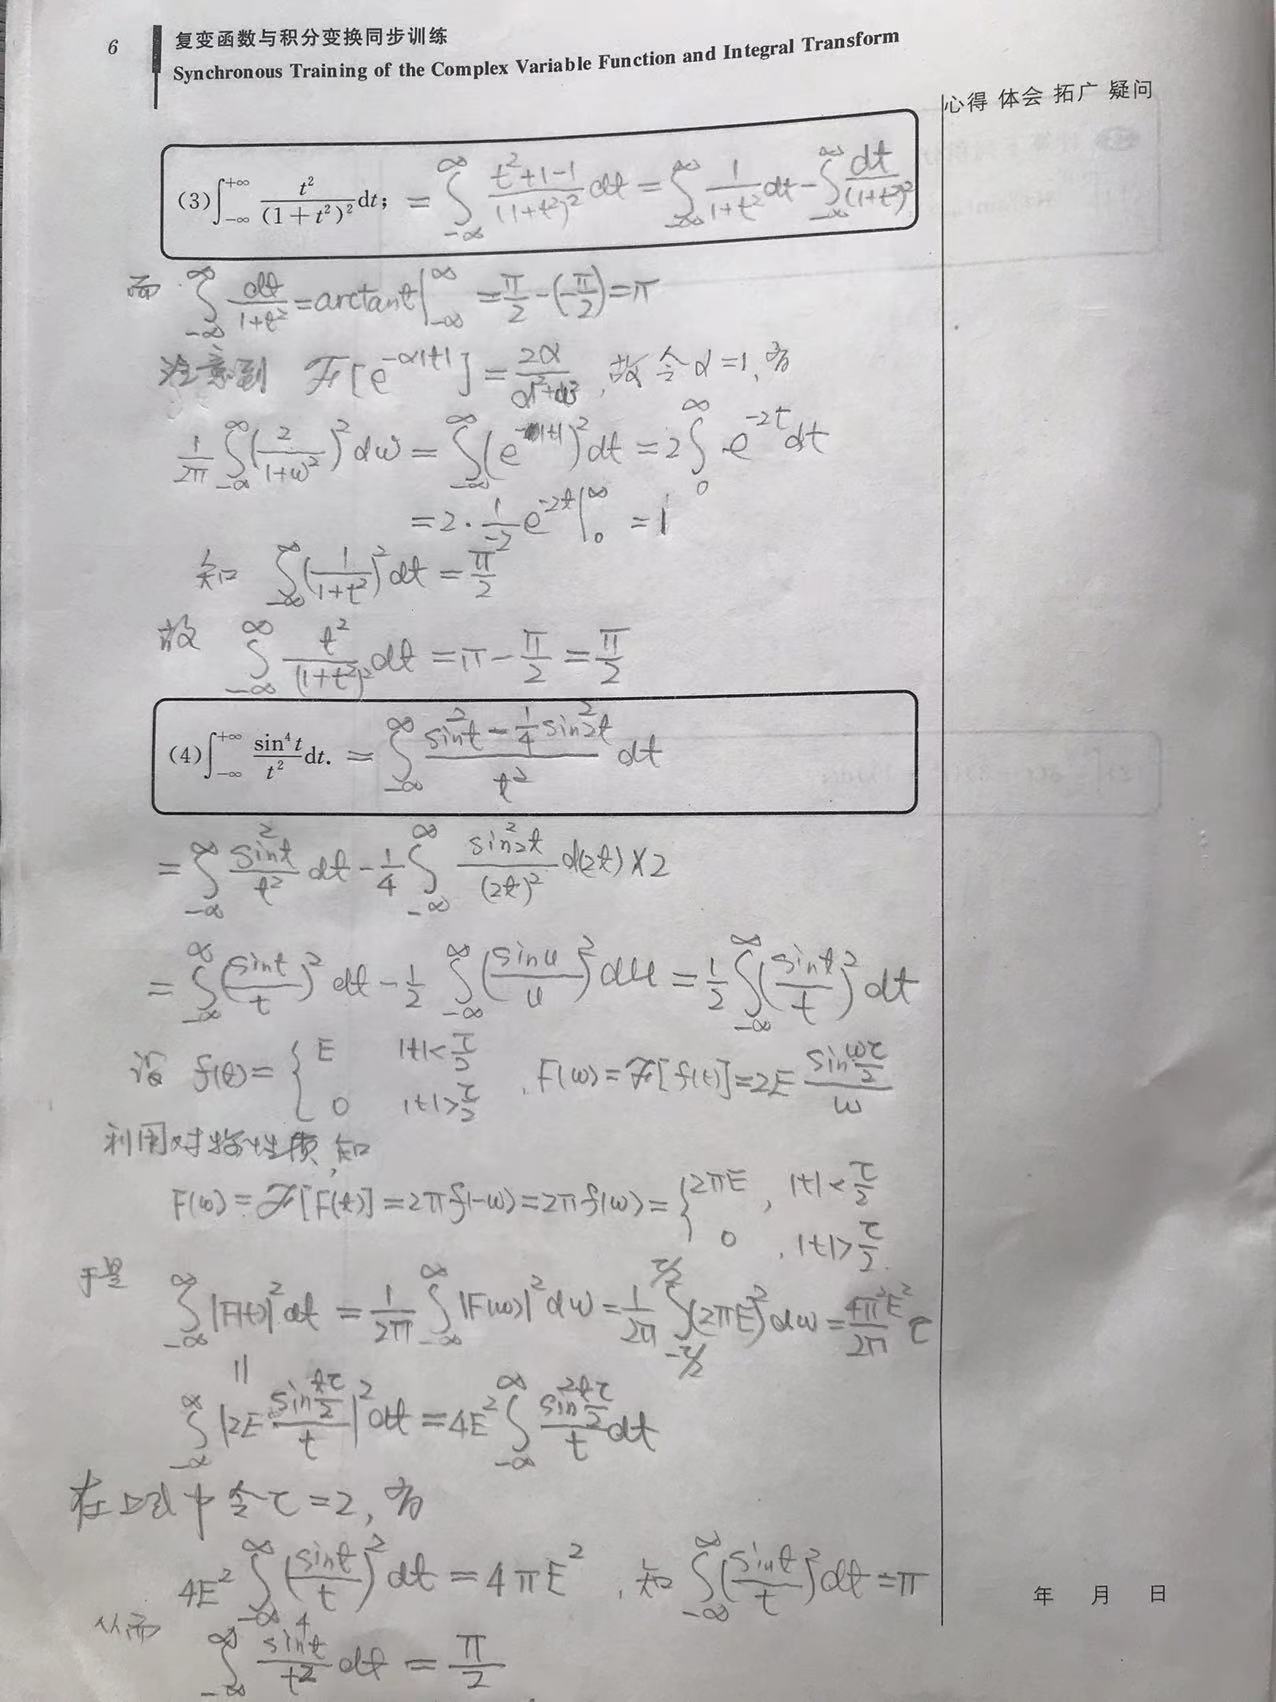 6
复变函数与积分变换同步训练
Synchronous Training of the Complex Variable Function and Integral Transform
心得 体会 拓广 疑问
(3) ∫_{-∞}^{+∞} t²/(1+t²)² dt; = ∫_{-∞}^{∞} (t²+1-1)/(1+t²)² dt = ∫_{-∞}^{∞} 1/(1+t²) dt - ∫_{-∞}^{∞} dt/(1+t²)²
而 ∫_{-∞}^{∞} dt/(1+t²) = arctant|_{-∞}^{∞} = π/2 - (-π/2) = π
注意到 ℱ[e^{-α|t|}] = 2α/(α²+ω²), 故令α=1, 有
1/2π ∫_{-∞}^{∞} (2/(1+ω²))² dω = ∫_{-∞}^{∞} (e^{-|t|})² dt = 2∫_0^∞ e^{-2t} dt
= 2·1/-2 e^{-2t}|_0^∞ = 1
知 ∫_{-∞}^{∞} (1/(1+t²))² dt = π/2
故 ∫_{-∞}^{∞} t²/(1+t²)² dt = π - π/2 = π/2
(4) ∫_{-∞}^{+∞} sin⁴t/t² dt. = ∫_{-∞}^{∞} (sin²t - 1/4 sin²2t)/t² dt
= ∫_{-∞}^{∞} sin²t/t² dt - 1/4 ∫_{-∞}^{∞} sin²2t/(2t)² d(2t)×2
= ∫_{-∞}^{∞} (sint/t)² dt - 1/2 ∫_{-∞}^{∞} (sinu/u)² du = 1/2 ∫_{-∞}^{∞} (sint/t)² dt
设 f(t) = { E |t|<τ/2 0 |t|>τ/2 , F(ω) = ℱ[f(t)] = 2E sin(ωτ/2)/ω
利用对称性质, 知
F(ω) = ℱ[F(t)] = 2πf(-ω) = 2πf(ω) = { 2πE, |t|<τ/2 0, |t|>τ/2.
于是 ∫_{-∞}^{∞} |F(t)|² dt = 1/2π ∫_{-∞}^{∞} |F(ω)|² dω = 1/2π ∫_{-τ/2}^{τ/2} (2πE)² dω = 4π²E²/2π τ
||
∫_{-∞}^{∞} |2E sin(tτ/2)/t|² dt = 4E² ∫_{-∞}^{∞} sin²(tτ/2)/t dt
在上式中令τ=2, 有
4E² ∫_{-∞}^{∞} (sint/t)² dt = 4πE², 知 ∫_{-∞}^{∞} (sint/t)² dt = π
从而 ∫_{-∞}^{∞} sin⁴t/t² dt = π/2
年 月 日